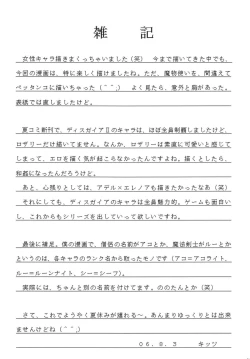 雑 記
女性キャラ描きまくっちゃいました（笑） 今まで描いてきた中でも、
今回の漫画は、特に楽しく描けましたね。ただ、魔物使いを、間違えて
ペッタンコに描いちゃった（＾＾;） よく見たら、意外と胸があった。
表紙では直しましたけど。
夏コミ新刊で、ディスガイアⅡのキャラは、ほぼ全員制覇しましたけど、
ロザリーだけ描いてません。なんか、ロザリーは素直に可愛いと感じて
しまって、エロを描く気が起こらなかったんですよね。描くとしたら、
和姦になったんだろうけど。
あと、心残りとしては、アデル×エレノアも描きたかったなあ（笑）
それにしても、ディスガイアのキャラは全員魅力的。ゲームも面白い
し、これからもシリーズを出していって欲しいです。
最後に補足。僕の漫画で、僧侶の名前がアコとか、魔法剣士がルーとか
というのは、各キャラのランク名から取ったモノです（アコ＝アコライト、
ルー＝ルーンナイト、シー＝シーフ）。
実際には、ちゃんと別の名前を付けてます。ののたんとか（笑）
さて、これでようやく夏休みが遅れる～。あんまりゆっくりとは出来
ませんけどね（＾＾;）
０６．８．３ キッツ